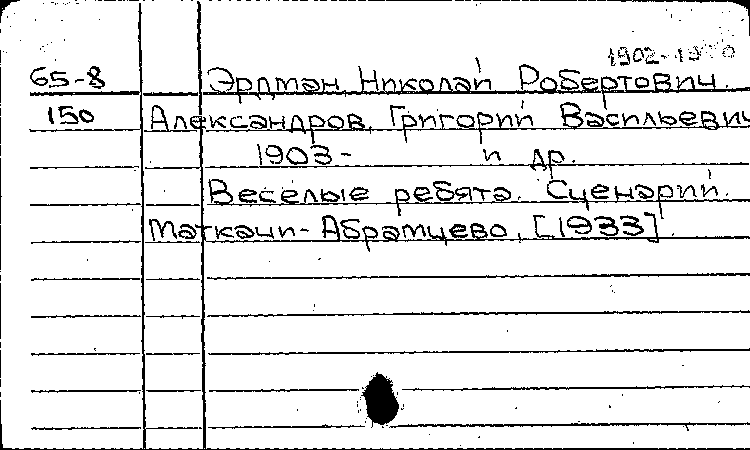 1902-1970
65-8 Эрдман, Николай Робертович.
150 Александров, Григорий Васильевич
1903- и др.
Веселые ребята. Сценарий.
Маткачи-Абрамцево, [1933].